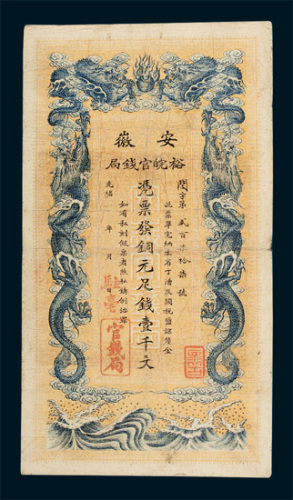 安徽
裕皖官錢局
閏字第貳百叁拾柒號
此票準完納本省丁漕及關稅鹽課釐金
憑票發銅元足錢壹千文
如有私刻假票者照私鑄例治罪
光緒 年 月 日
官錢局